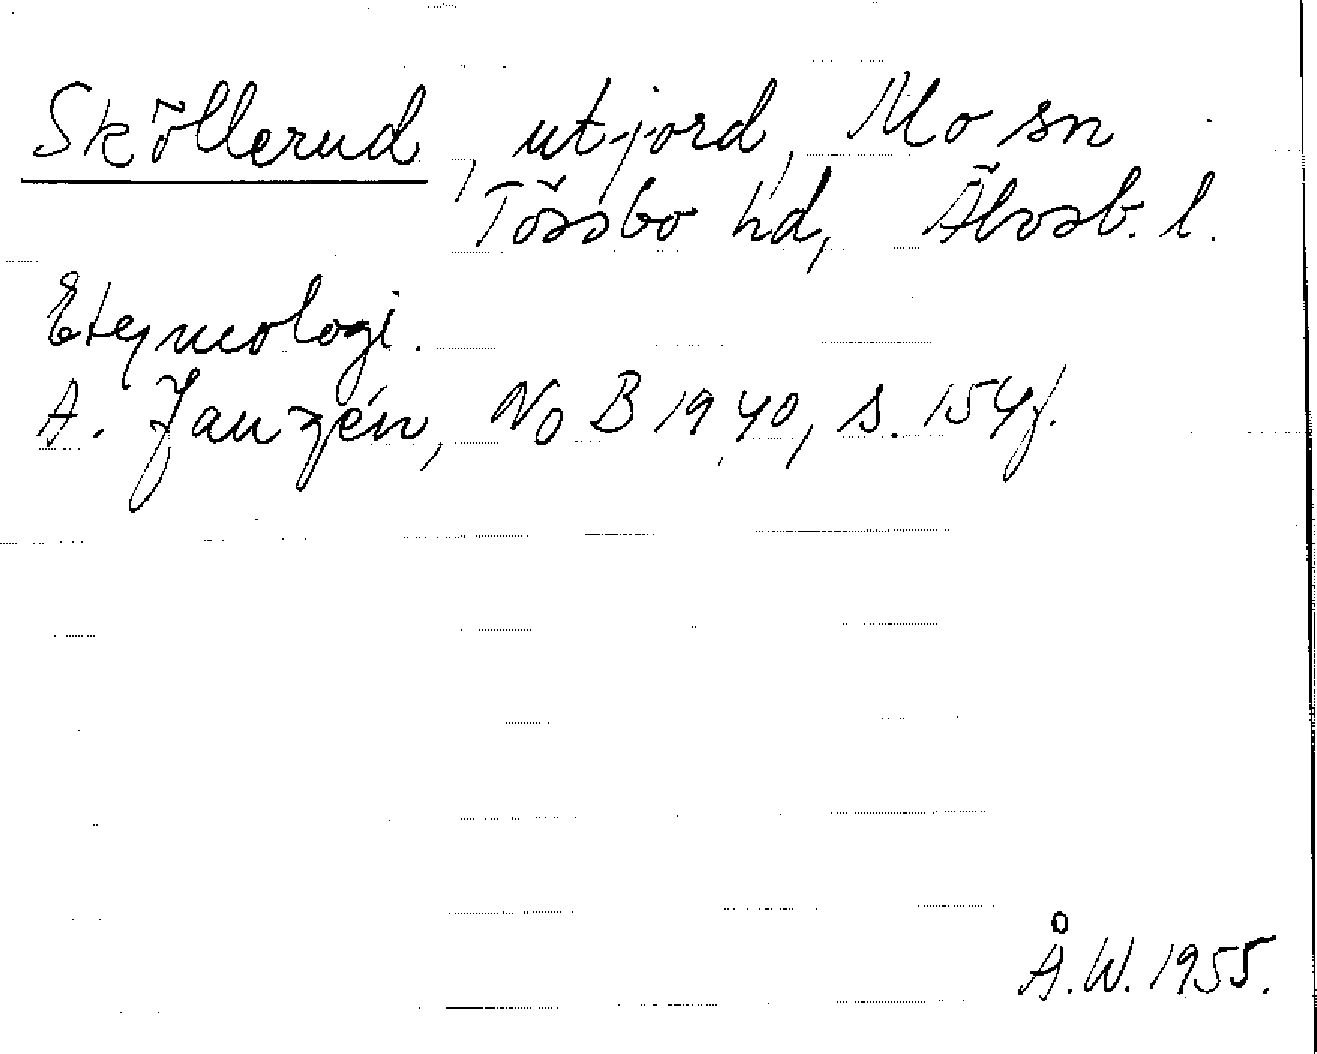 Sköllerud, utjord, Mo sn
Tössbo hd, Älvsb. l.
Etymologi.
A. Janzén, NoB 1940, s. 154f.
Å.W. 1955.